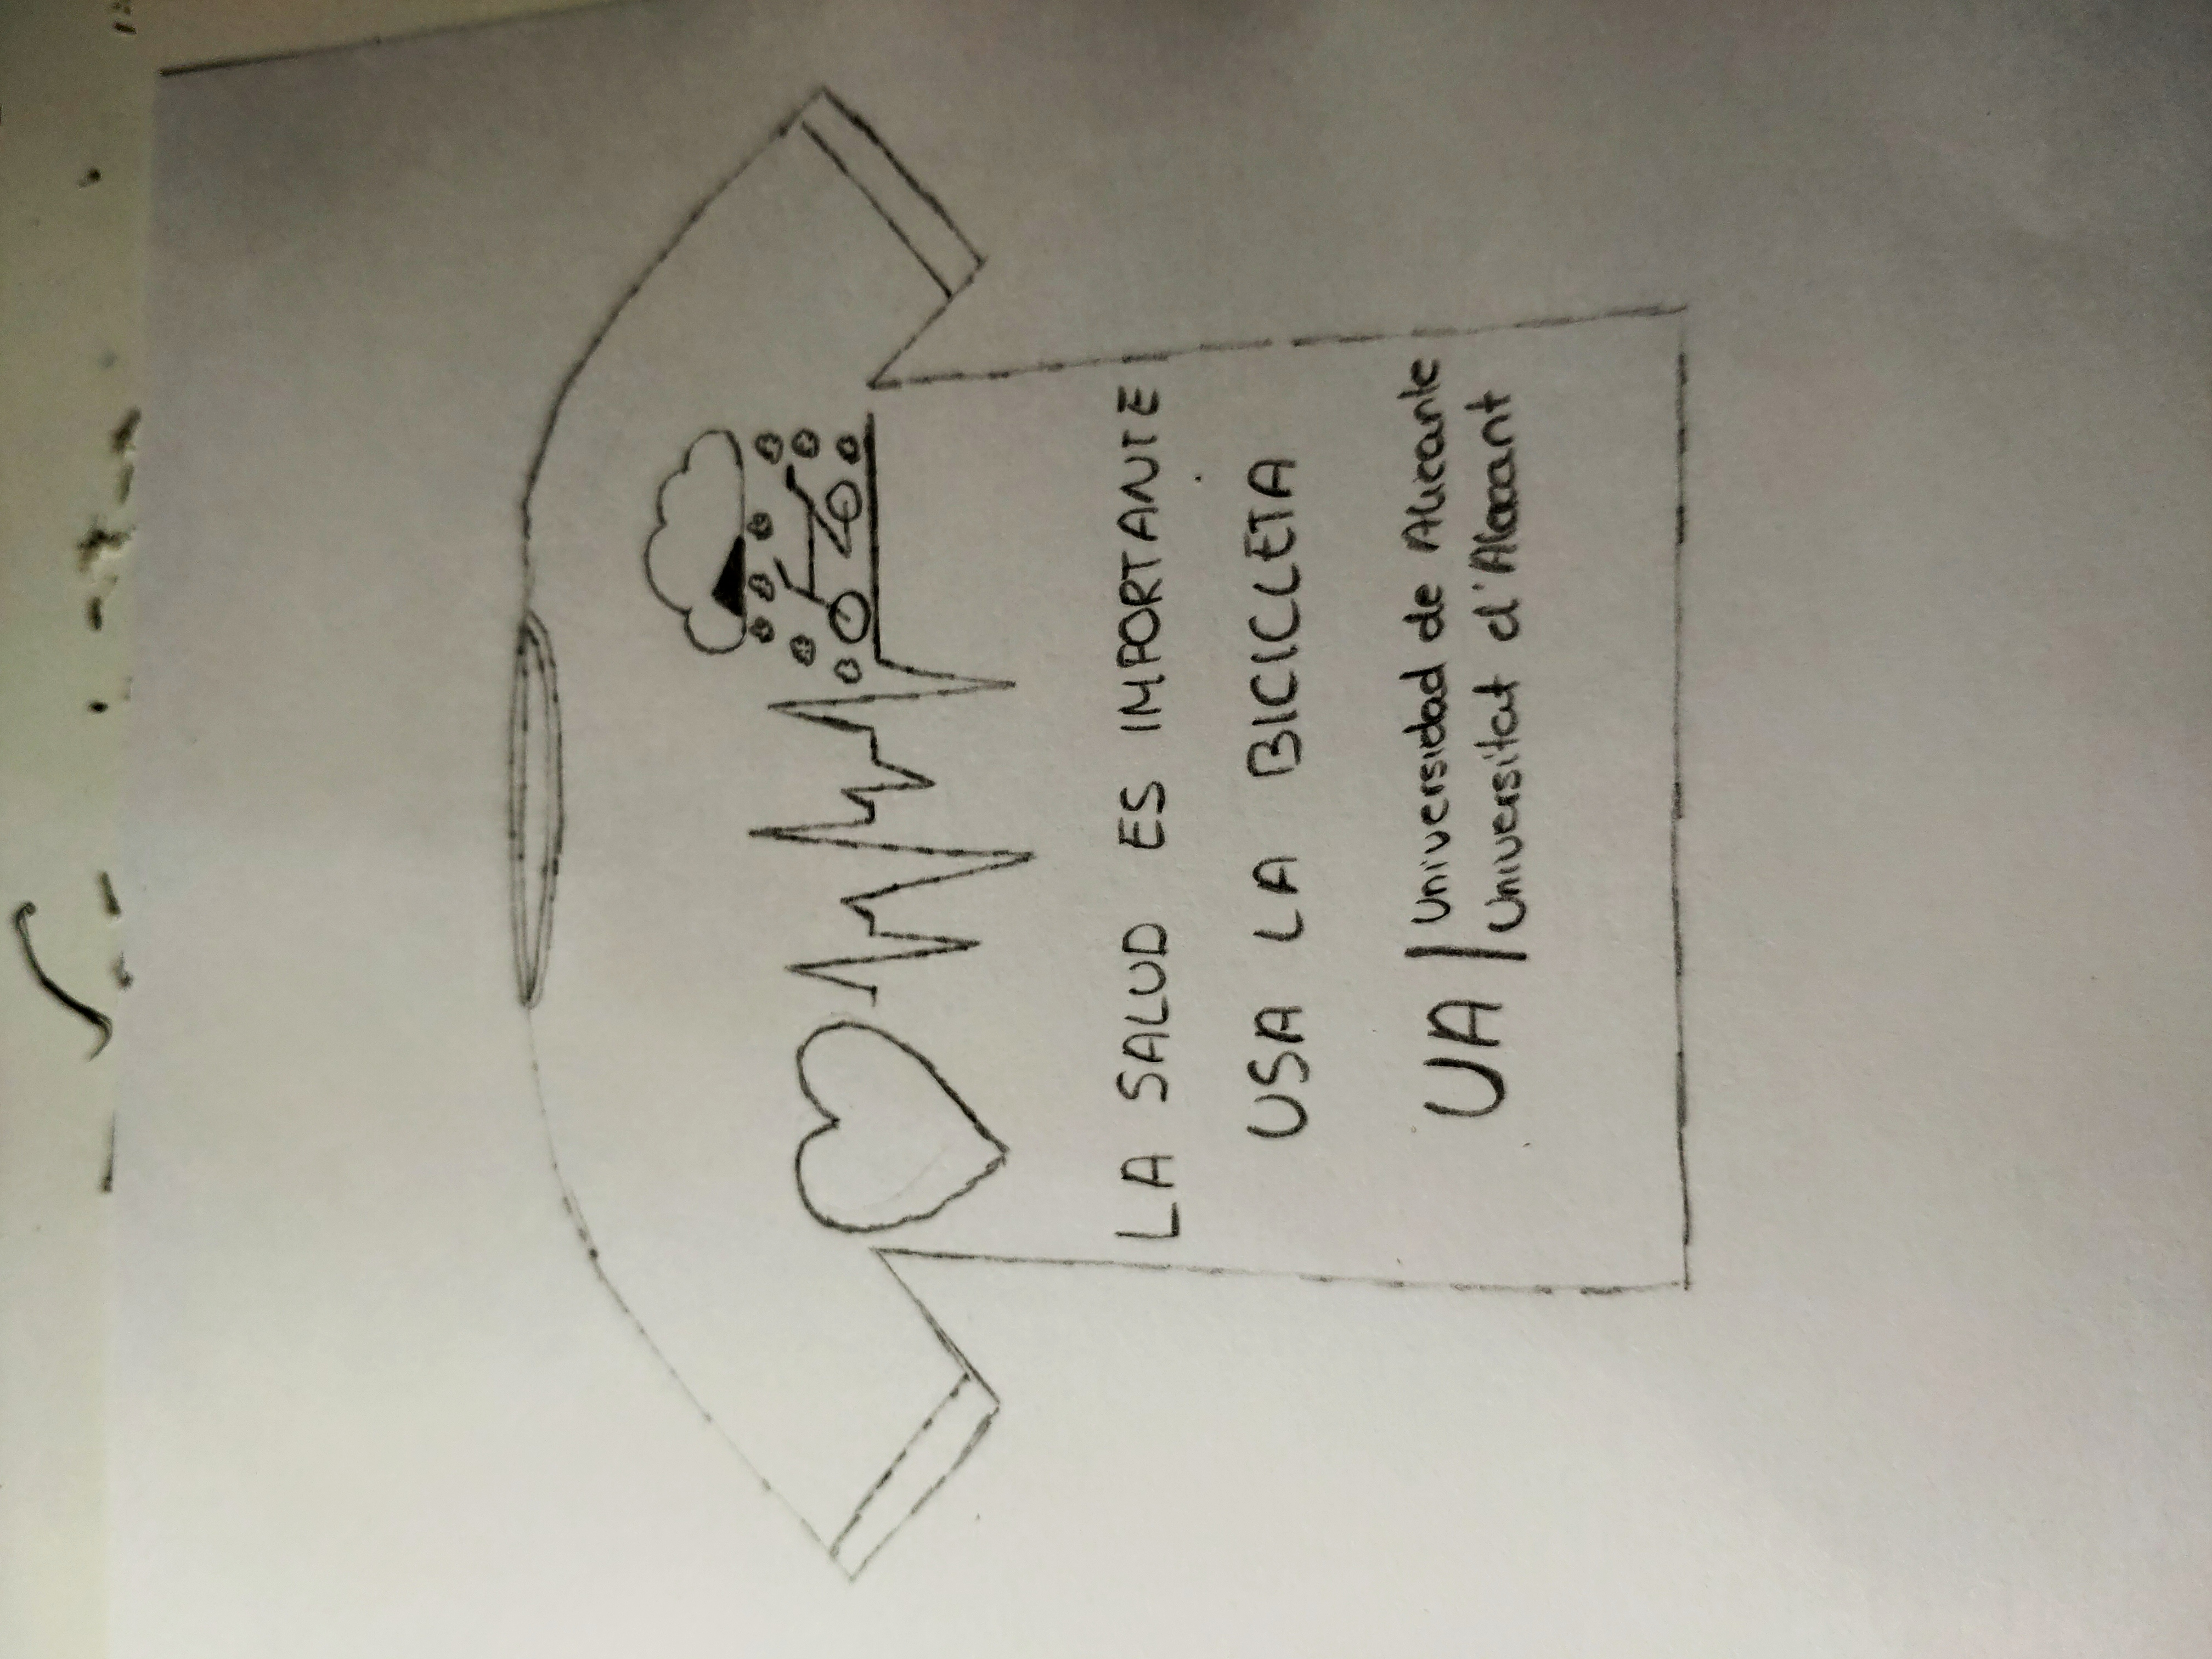 LA SALUD ES IMPORTANTE
USA LA BICICLETA
UA | Universidad de Alicante
Universitat d'Alacant